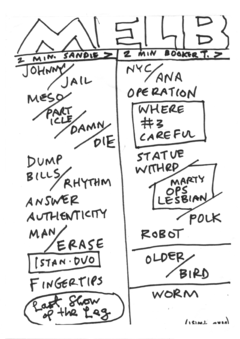 MELB
2 MIN. SANDIE >
JOHNNY/
JAIL
MESO/
PART
ICLE/
DAMN/
DIE
DUMP
BILLS/
RHYTHM
ANSWER
AUTHENTICITY
MAN/
ERASE
ISTAN-DUO
FINGERTIPS
Last Show
of the Leg
2 MIN BOOKER T. >
NYC/
ANA
OPERATION
WHERE
#3
CAREFUL
STATUE
WITHRD/
MARTY
OPS
LESBIAN/
POLK
ROBOT
OLDER/
BIRD
WORM